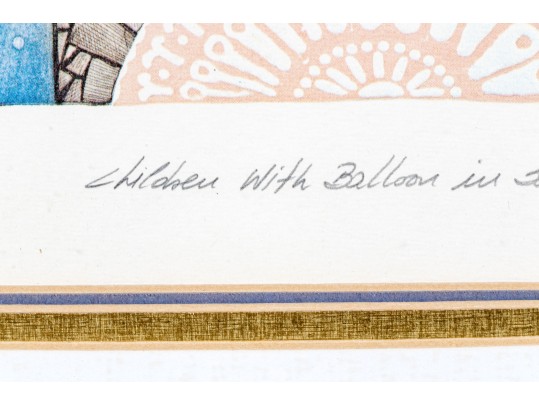 Children With Balloon in